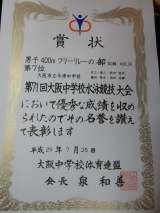 賞状
男子400mフリーリレーの部
第7位
第71回大阪中学校水泳競技大会
において優秀な成績を収め
られたのでその名誉を讃え
て表彰します
平成29年7月25日
大阪中学校体育連盟
会長 泉 和善